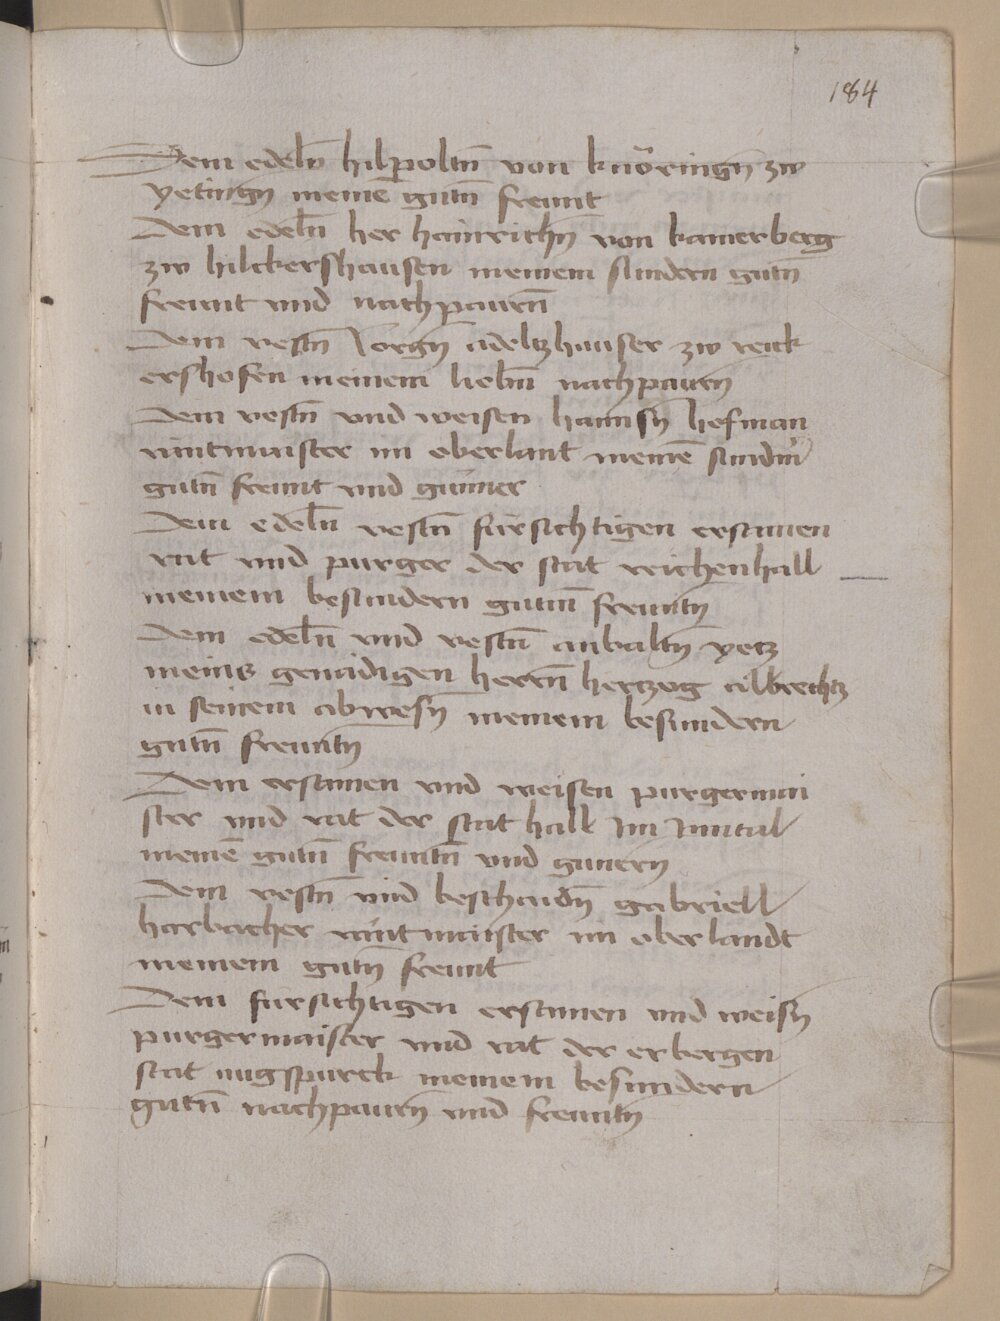 184
Dem edeln̄ hilpoltn̄ von knöringn̄ zw
yetingn̄ meinē gutn̄ freunt
Dem edeln̄ her hainrichn̄ von kamerberg
zw hilckershausen meinem sundern gutn̄
freunt vnd nachpaurn̄
Dem vestn̄ Jorgn̄ adeltzhauser zw reick
ershofen meinem liebn̄ nachpaurn̄
Dem vestn̄ vnd weisen hannsn̄ hofman
rintmaister im oberlant meinē sundrn̄
gutn̄ freunt vnd gunner
Dem edeln̄ vestn̄ fürsichtigen ersamen
rat vnd purger der stat reichenhall
meinem besundern gutn̄ freuntn̄
Dem edeln̄ vnd vestn̄ anbaltn̄ yetz
meins genadigen herrn̄ hertzog albrechtz
in seinem abwesn̄ meinem besundern
gutn̄ freuntn̄
Dem ersamen vnd weisen purgermai
ster vnd rat der stat hall Im Inntal
meinē gutn̄ freuntn̄ vnd gunern̄
Dem vestn̄ vnd beschaidn̄ gabriell
harbacher rintmaister im oberlandt
meinem gutn̄ freunt
Dem fursichtigen ersamen vnd weisn̄
purgermaister vnd rat der erbergen
stat augspurck meinem besundern
gutn̄ nachpaurn̄ vnd freuntn̄